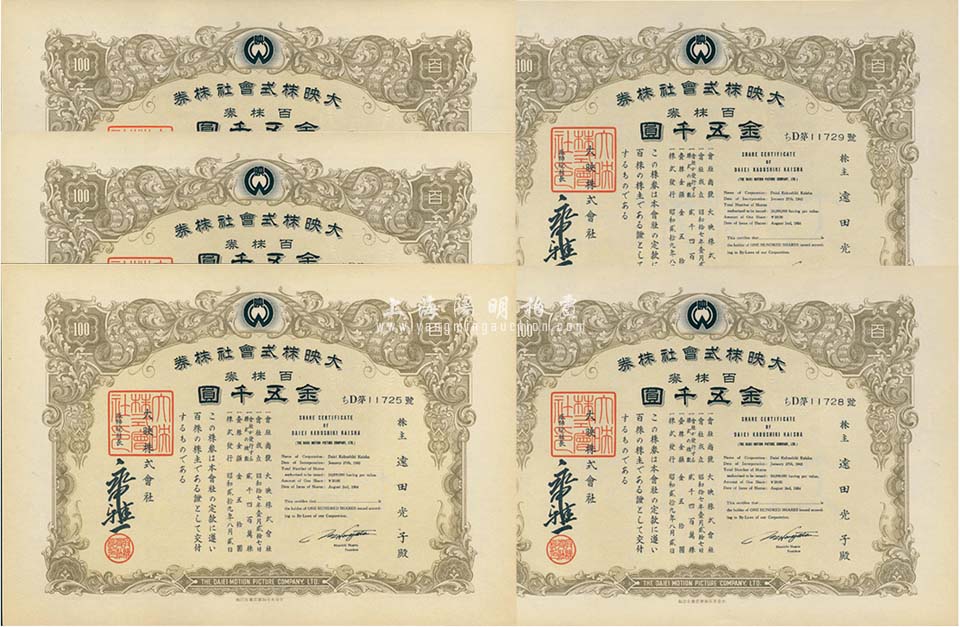 100
百
大映株式會社株券
百株券
金五千圓
100
百
大映株式會社株券
百株券
金五千圓
ちD第11729號
株主 遠田光
SHARE CERTIFICATE
OF
DAIEI KABUSHIKI KAISHA
(THE DAIEI MOTION PICTURE COMPANY, LTD.)
Name of Corporation: Daiei Kabushiki Kaisha
Date of Incorporation: January 27th, 1942
Total Number of Shares
authorized to be issued: 24,000,000 having par value.
Amount of One Share: ¥50.00
Date of Issue of Shares: August 2nd, 1954
This certifies that is
the holder of ONE HUNDRED SHARES issued accord-
ing to By-Laws of our Corporation.
會社商號 大映株式會社
株式發行 昭和貳拾九年八月貳日
この株券は本會社の定款に遵い
百株の株主である證として交付
するものである
大映株式會社
100
大映株式會社株券
百株券
金五千圓
上海陽明拍賣
www.yangmingauction.com
100
百
大映株式會社株券
百株券
金五千圓
ちD第11725號
株主 遠田光子殿
SHARE CERTIFICATE
OF
DAIEI KABUSHIKI KAISHA
(THE DAIEI MOTION PICTURE COMPANY, LTD.)
Name of Corporation: Daiei Kabushiki Kaisha
Date of Incorporation: January 27th, 1942
Total Number of Shares
authorized to be issued: 24,000,000 having par value.
Amount of One Share: ¥50.00
Date of Issue of Shares: August 2nd, 1954
This certifies that is
the holder of ONE HUNDRED SHARES issued accord-
ing to By-Laws of our Corporation.
President
會社商號 大映株式會社
會社成立 昭和拾七年壹月貳拾七日
壹株金額 金五拾圓
株式發行 昭和貳拾九年八月貳日
この株券は本會社の定款に遵い
百株の株主である證として交付
するものである
大映株式會社
THE DAIEI MOTION PICTURE COMPANY, LTD.
100
百
大映株式會社株券
百株券
金五千圓
ちD第11728號
株主 遠田光子殿
SHARE CERTIFICATE
OF
DAIEI KABUSHIKI KAISHA
(THE DAIEI MOTION PICTURE COMPANY, LTD.)
Name of Corporation: Daiei Kabushiki Kaisha
Date of Incorporation: January 27th, 1942
Total Number of Shares
authorized to be issued: 24,000,000 having par value.
Amount of One Share: ¥50.00
Date of Issue of Shares: August 2nd, 1954
This certifies that is
the holder of ONE HUNDRED SHARES issued accord-
ing to By-Laws of our Corporation.
President
會社商號 大映株式會社
會社成立 昭和拾七年壹月貳拾七日
壹株金額 金五拾圓
株式發行 昭和貳拾九年八月貳日
この株券は本會社の定款に遵い
百株の株主である證として交付
するものである
大映株式會社
THE DAIEI MOTION PICTURE COMPANY, LTD.